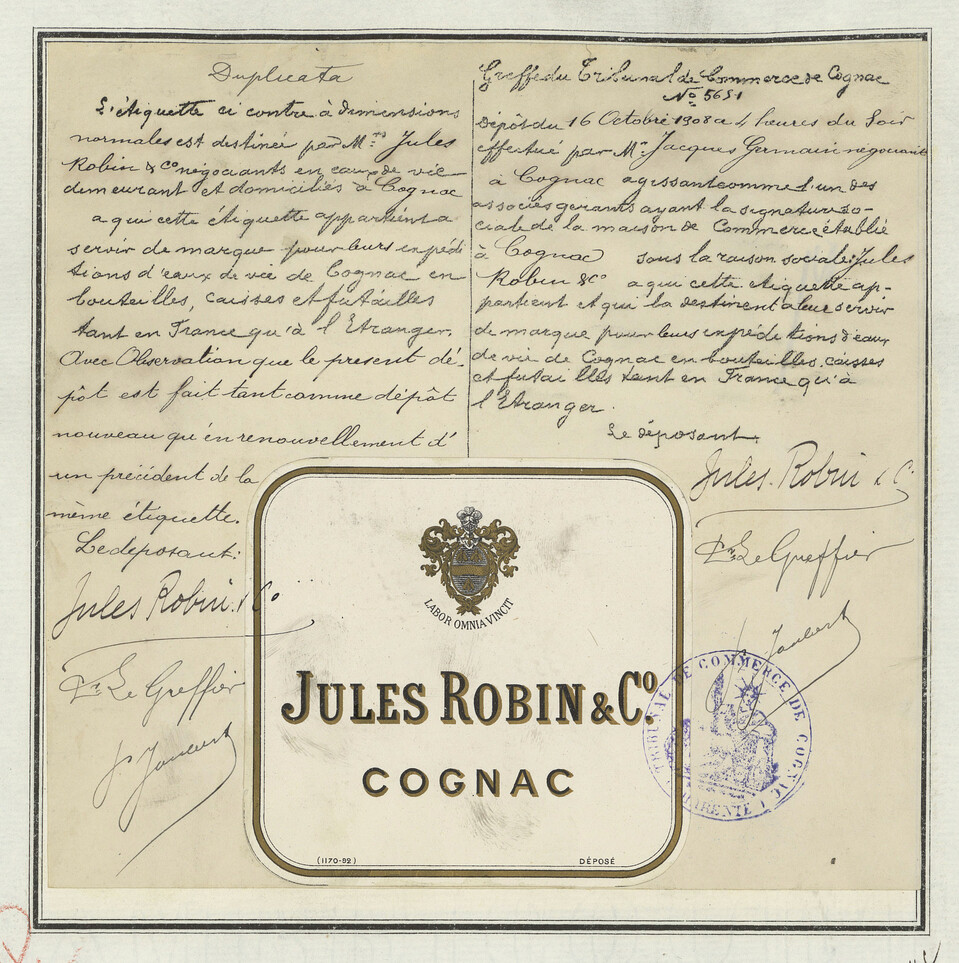 Duplicata
L'étiquette ci contre à dimensions
normales est destinée par Mrs Jules
Robin & Co négociants en eaux de vie
demeurant et domiciliés à Cognac
a qui cette étiquette appartient a
servir de marque pour leurs expédi
tions d'eaux de vie de Cognac en
bouteilles, caisses et futailles
tant en France qu'à l'Etranger.
Avec Observation que le present dé-
pôt est fait tant comme dépôt
nouveau qu'en renouvellement d'
un précédent de la
même étiquette.
Le déposant:
Jules Robin & Co
Pr Le Greffier
Greffe du Tribunal de Commerce de Cognac
No 5651
Dépôt du 16 Octobre 1908 a 4 heures du Soir
effectué par Mr Jacques Germain négociant
à Cognac agissant comme l'un des
associés gerants ayant la signature so-
ciale de la maison de Commerce établié
à Cognac sous la raison sociale: Jules
Robin & Co a qui cette étiquette ap-
partient et qui la destinent a leur servir
de marque pour leurs expéditions d'eaux
de vie de Cognac en bouteilles, caisses
et futailles tant en France qu'à
l'Etranger.
Le déposant.
Jules Robin & C.
Pr Le Greffier
LABOR OMNIA VINCIT
JULES ROBIN & Co.
COGNAC
(1170-92) DÉPOSÉ
TRIBUNAL DE COMMERCE DE COGNAC